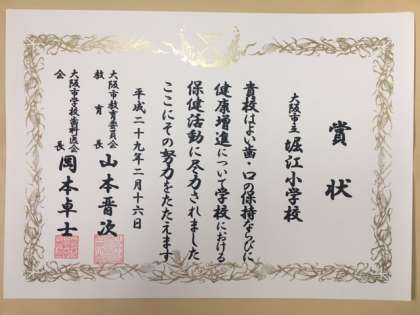 賞状
大阪市立 堀江小学校
貴校はよい歯・口の保持ならびに
健康増進について学校における
保健活動に尽力されました
ここにその努力をたたえます
平成二十九年二月十六日
大阪市教育委員会
教育長 山本晋次
大阪市学校歯科医会
会長 岡本卓士